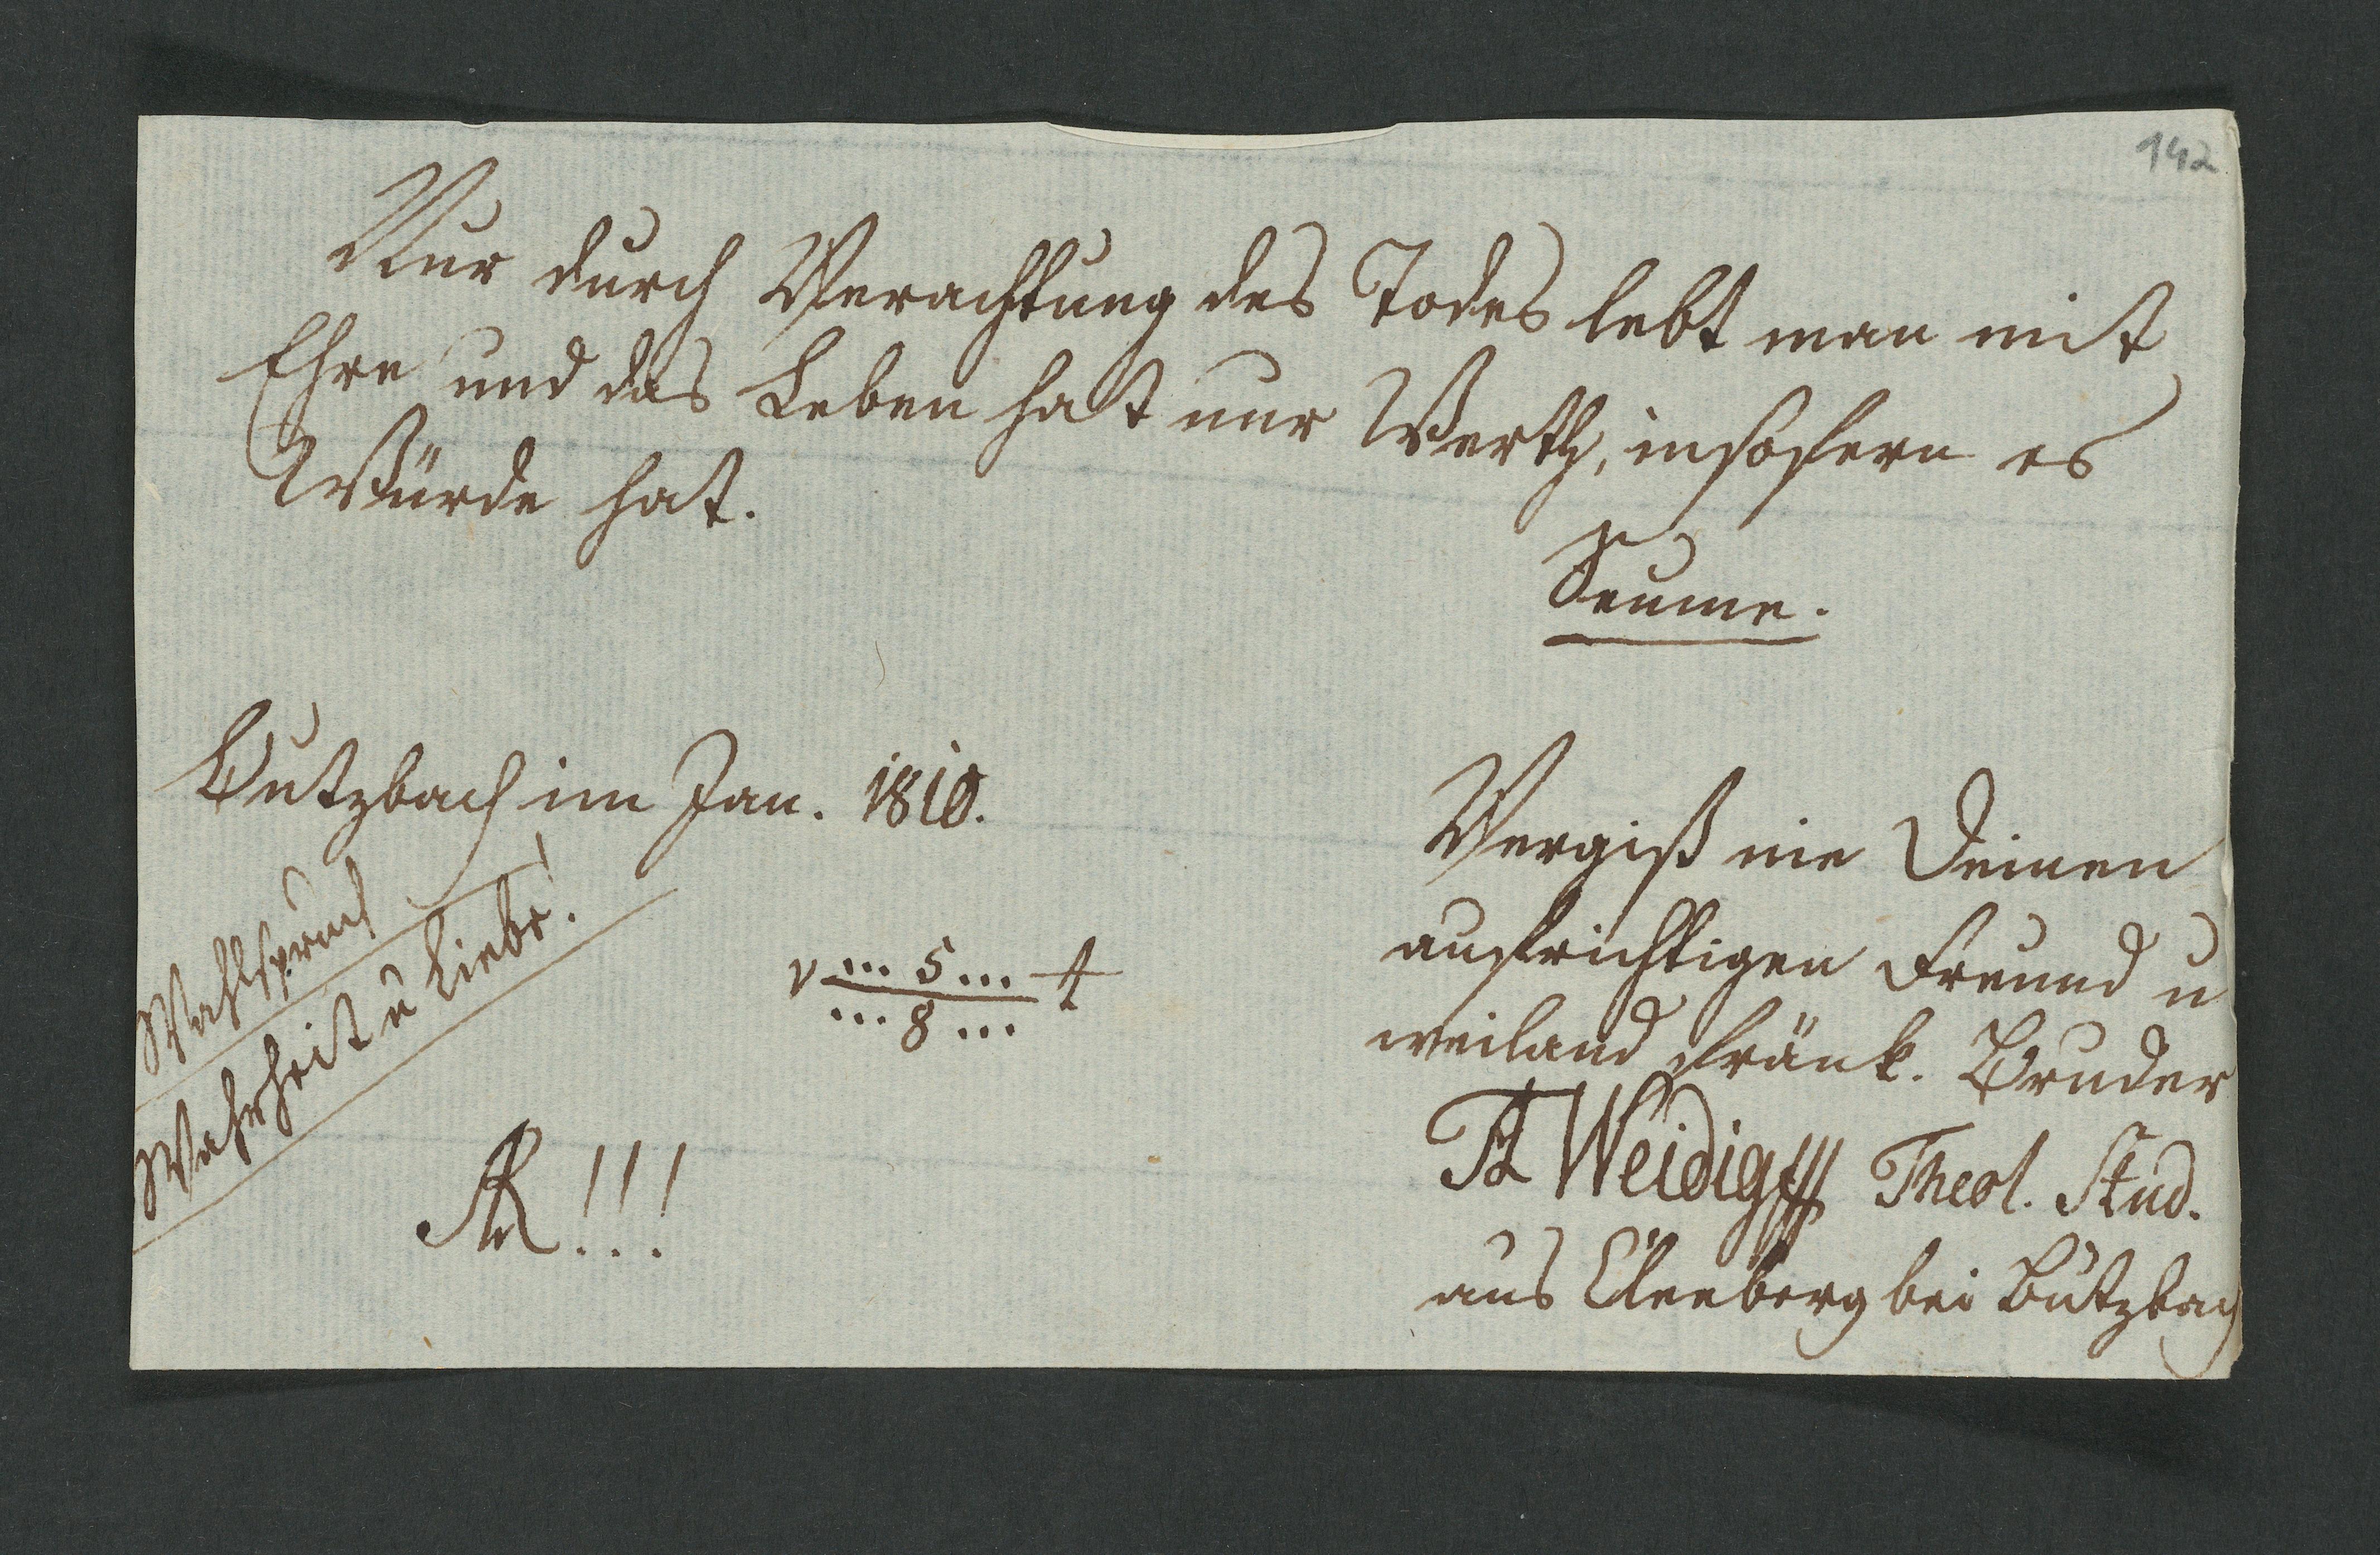 142
Nur durch Verachtung des Todes lebt man mit
Ehre und das Leben hat nur Werth, insofern es
Würde hat.
Seume.
Butzbach im Jan. 1810.
Wahlspruch
Wahrheit u Liebe!
v ... 5 ...
... 8 ...
!!!
Vergiß nie Deinen
aufrichtigen Freund u
weiland fränk. Bruder
Weidig Theol. Stud.
aus Cleeberg bei Butzbach